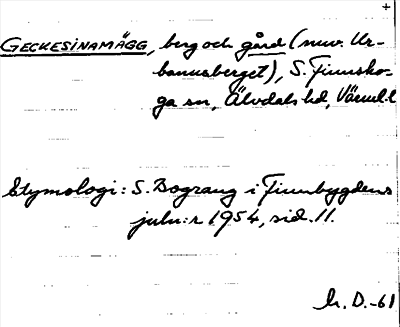 +
GECKESINAMÄGG, berg och gård (nuv. Ur-
banusberget), S. Finnsko-
ga sn, Älvdals hd, Värml.l
Etymologi: S. Bograng i Finnbygdens
julnr 1954, sid. 11.
D. -61